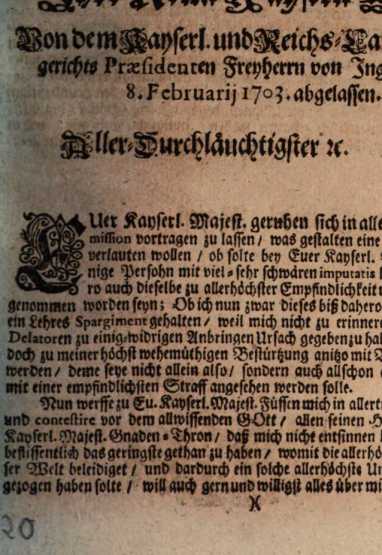 Von dem Kayserl. und Reichs-Ca
gerichts Præsidenten Freyherrn von Ing
8. Februarij 1703. abgelassen.
Aller-Durchläuchtigster ꝛc.
EUer Kayserl. Majest. geruhen sich in alle
mission vortragen zu lassen / was gestalten eine
verlauten wollen / ob solte bey Euer Kayserl.
nige Persohn mit viel-sehr schwären imputatis
ro auch dieselbe zu allerhöchster Empfindlichkeit
genommen worden seyn; Ob ich nun zwar dieses biß dahero
ein lehres Spargiment gehalten / weil mich nicht zu erinnere
Delatoren zu einig-widrigen Anbringen Ursach gegeben zu hab
doch zu meiner höchst wehemüthigen Bestürtzung anitzo mit
werden / deme seye nicht allein also / sondern auch allschon
mit einer empfindlichsten Straff angesehen werden solle.
Nun werffe zu Eu. Kayserl. Majest. Füssen mich in allert
und contestire vor dem allwissenden GOtt / allen seinen H
Kayserl. Majest. Gnaden-Thron / daß mich nicht entsinnen
beflissentlich das geringste gethan zu haben / womit die allerhö
ser Welt beleidiget / und dardurch ein solche allerhöchste Un
gezogen haben solte / will auch gern und willigst alles über mi
)(
20